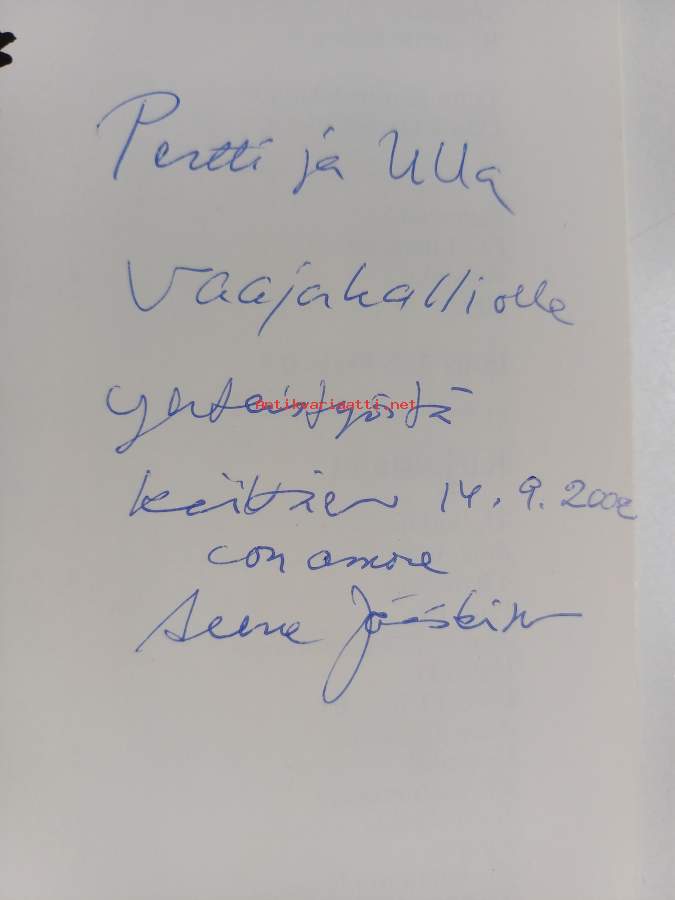 Pertti ja Ulla
Vaajakalliolle
yhteistyöstä
Antikvariaatti.net
kiittäen 14.9.2002
con amore
Aarne Jääskinen